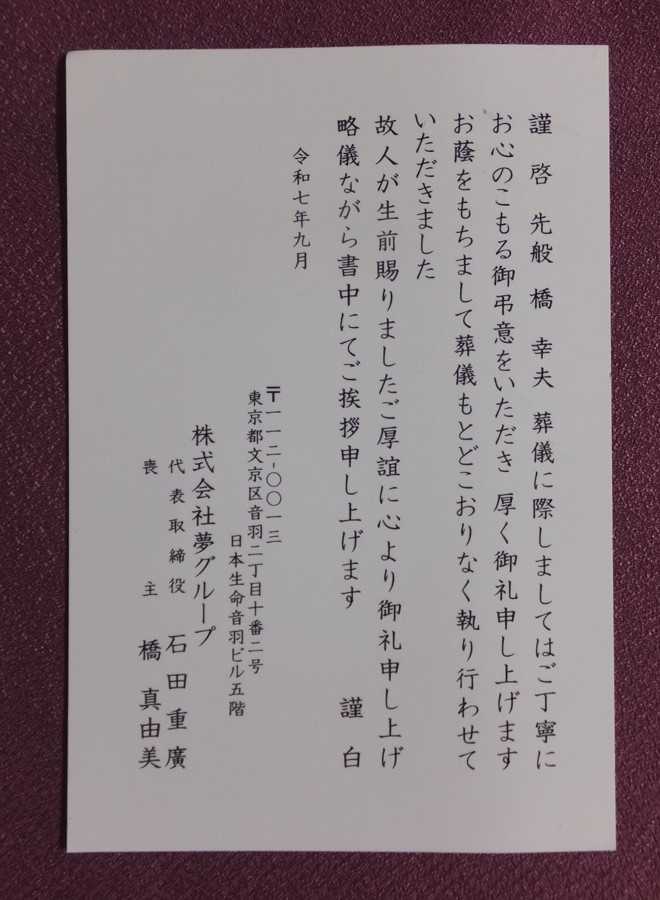 謹啓 先般 橋 幸夫 葬儀に際しましてはご丁寧に
お心のこもる御弔意をいただき 厚く御礼申し上げます
お蔭をもちまして葬儀もとどこおりなく執り行わせて
いただきました
故人が生前賜りましたご厚誼に心より御礼申し上げ
略儀ながら書中にてご挨拶申し上げます 謹白
令和七年九月
〒一一二-〇〇一三
東京都文京区音羽二丁目十番二号
日本生命音羽ビル五階
株式会社夢グループ
代表取締役 石田重廣
喪主 橋 真由美